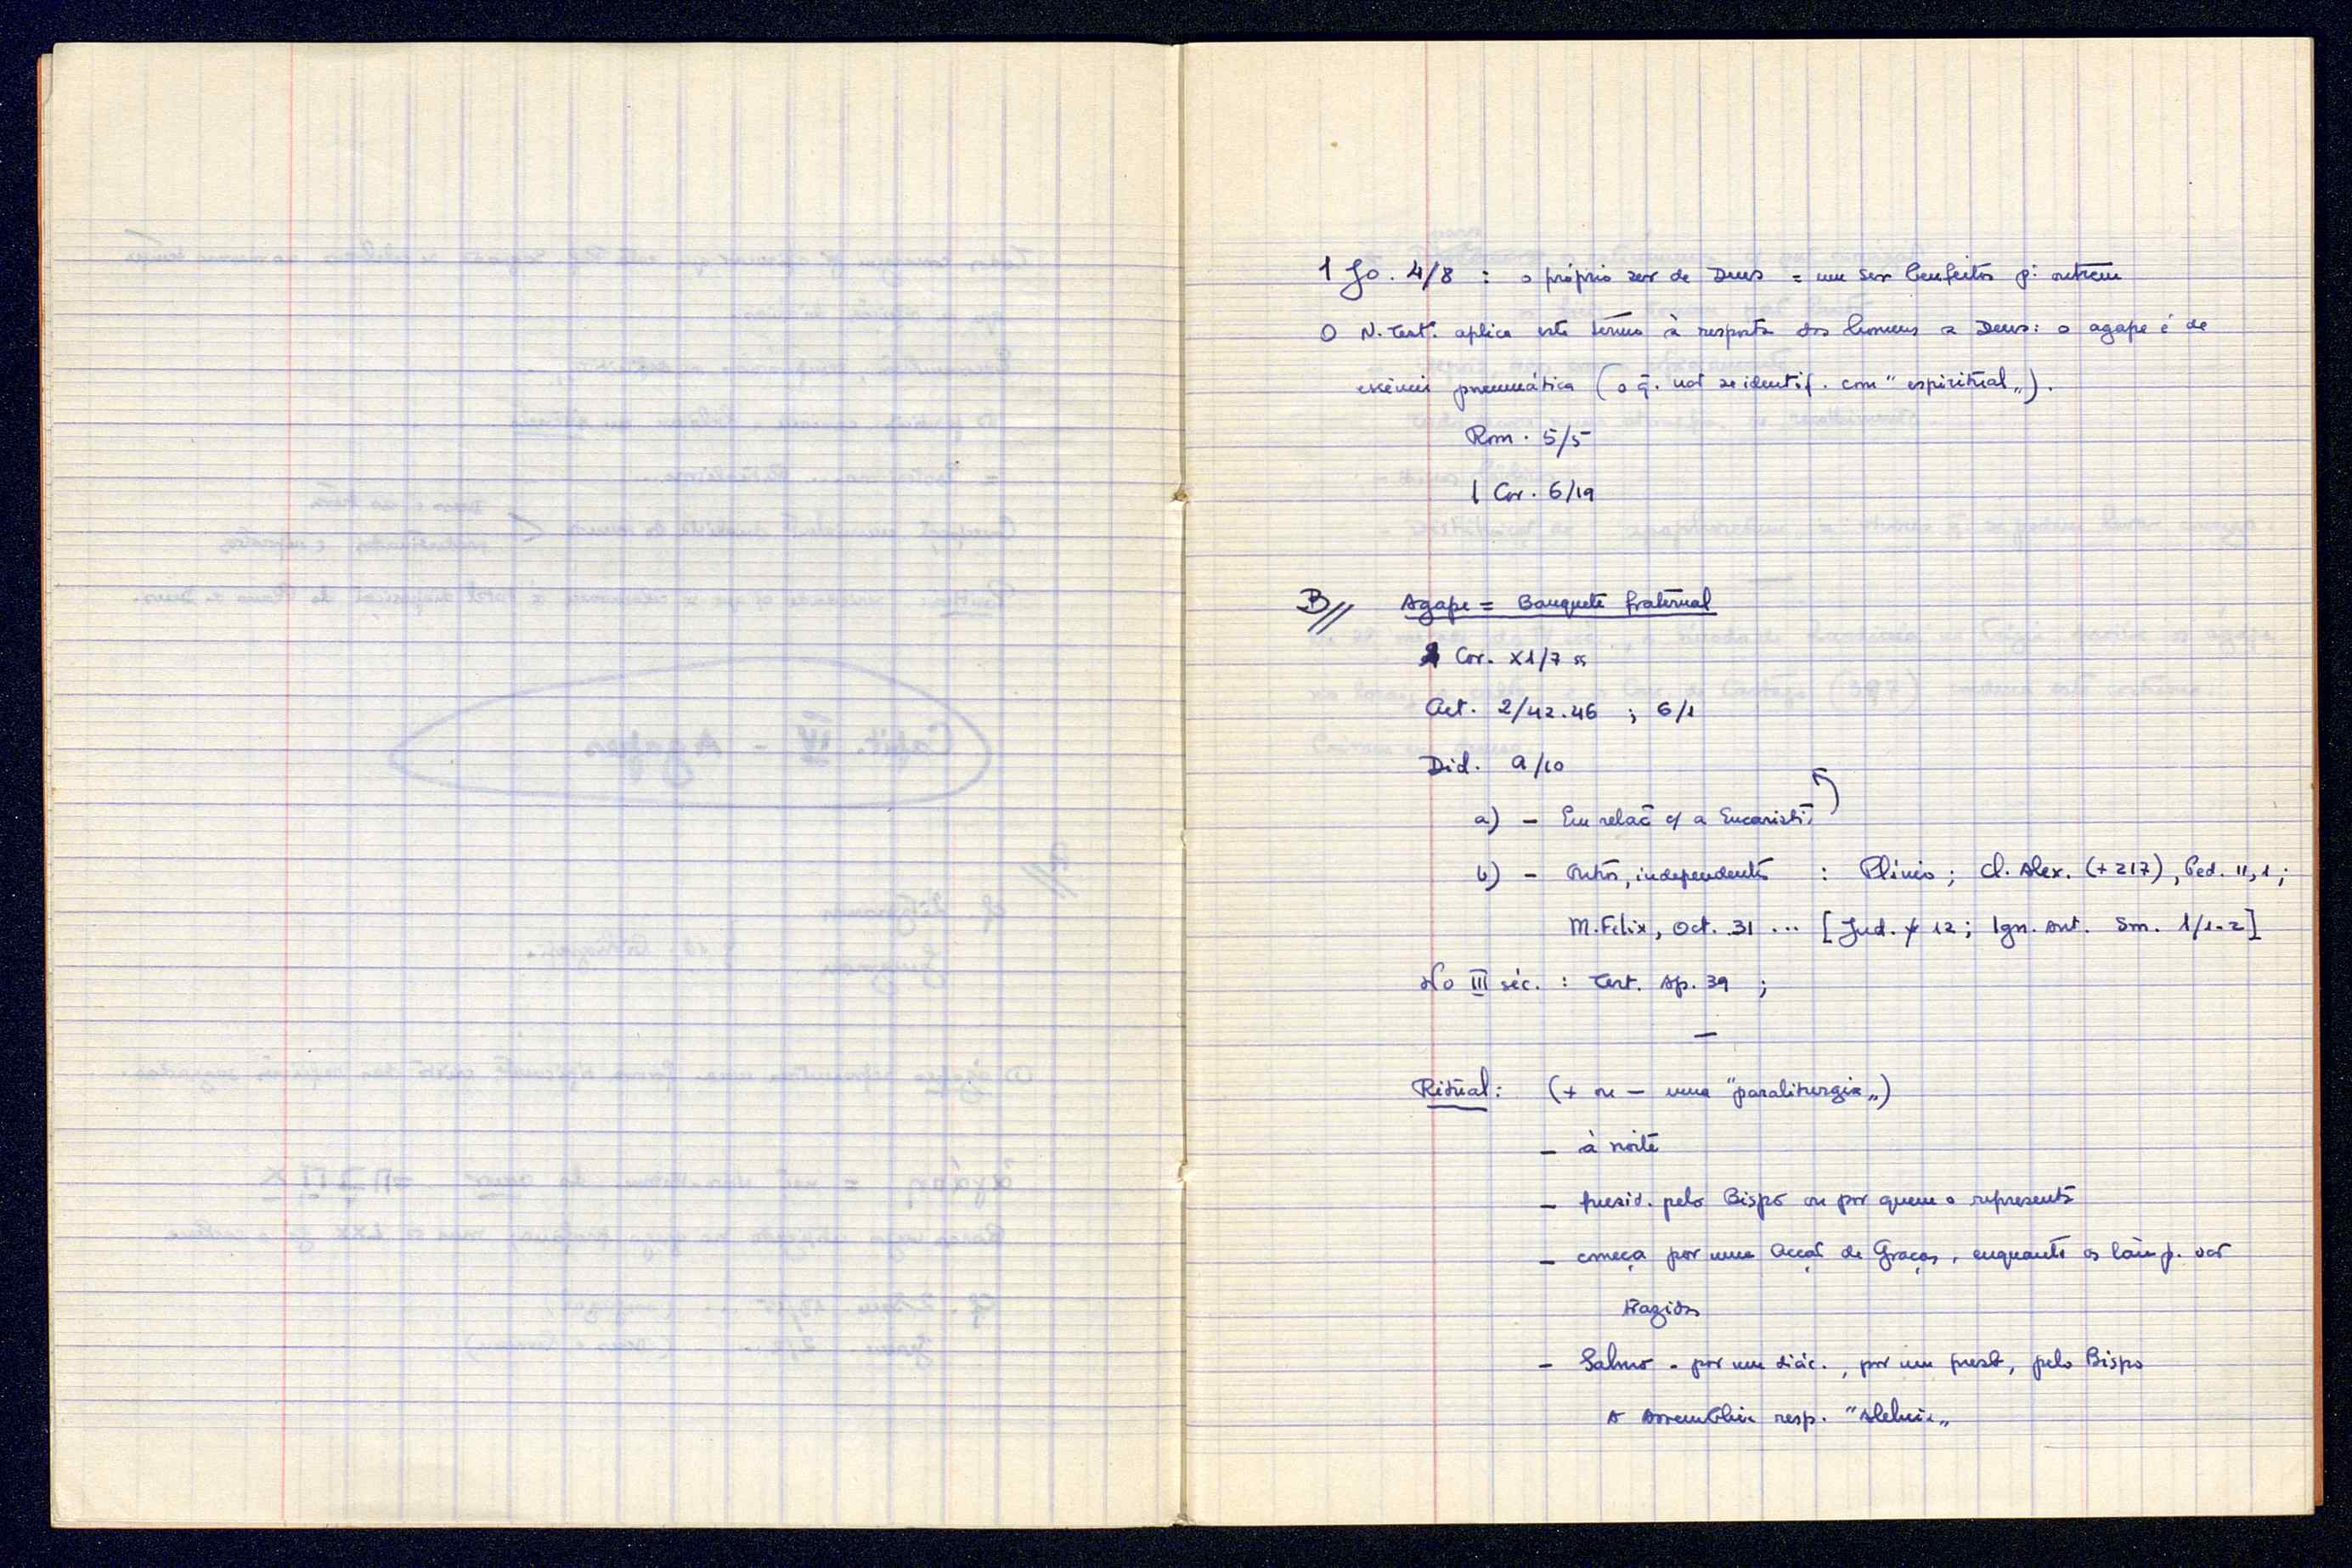 1 Jo. 4/8 : o próprio ser de Deus = um ser benfeitor p: outrem
O N. Test. aplica este têrmo à resposta dos homens a Deus: o agape é de
essência pneumática (o q̄. não se identif. com "espiritual„).
Rom. 5/5
1 Cor. 6/19
B// Agape = Banquete fraternal
1 Cor. XI/7 ss
Act. 2/42.46 ; 6/1
Did. 9/10
a) - Em relaç c/ a Eucaristi.
b) - Outros, independentes : Plínio; Cl. Alex. (+ 217), Ped. II, 1;
M. Felix, Oct. 31 ... [Jud. 12; Ign. Ant. Sm. 1/1-2]
No III séc. : Tert. Ap. 39 ;
—
Ritual: (+ ou - uma "paraliturgia„)
- à noite
- presid. pelo Bispo ou por quem o representa
- começa por uma Acção de Graças, enquanto as lâmp. são
trazidas
- Salmo - por um diác., por um presb, pelo Bispo
A Assembleia resp. "Aleluia„